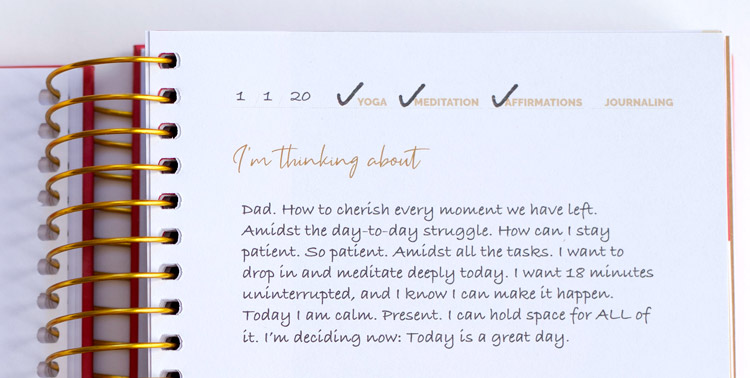 1 1 20 YOGA MEDITATION AFFIRMATIONS JOURNALING
I'm thinking about
Dad. How to cherish every moment we have left.
Amidst the day-to-day struggle. How can I stay
patient. So patient. Amidst all the tasks. I want to
drop in and meditate deeply today. I want 18 minutes
uninterrupted, and I know I can make it happen.
Today I am calm. Present. I can hold space for ALL of
it. I'm deciding now: Today is a great day.